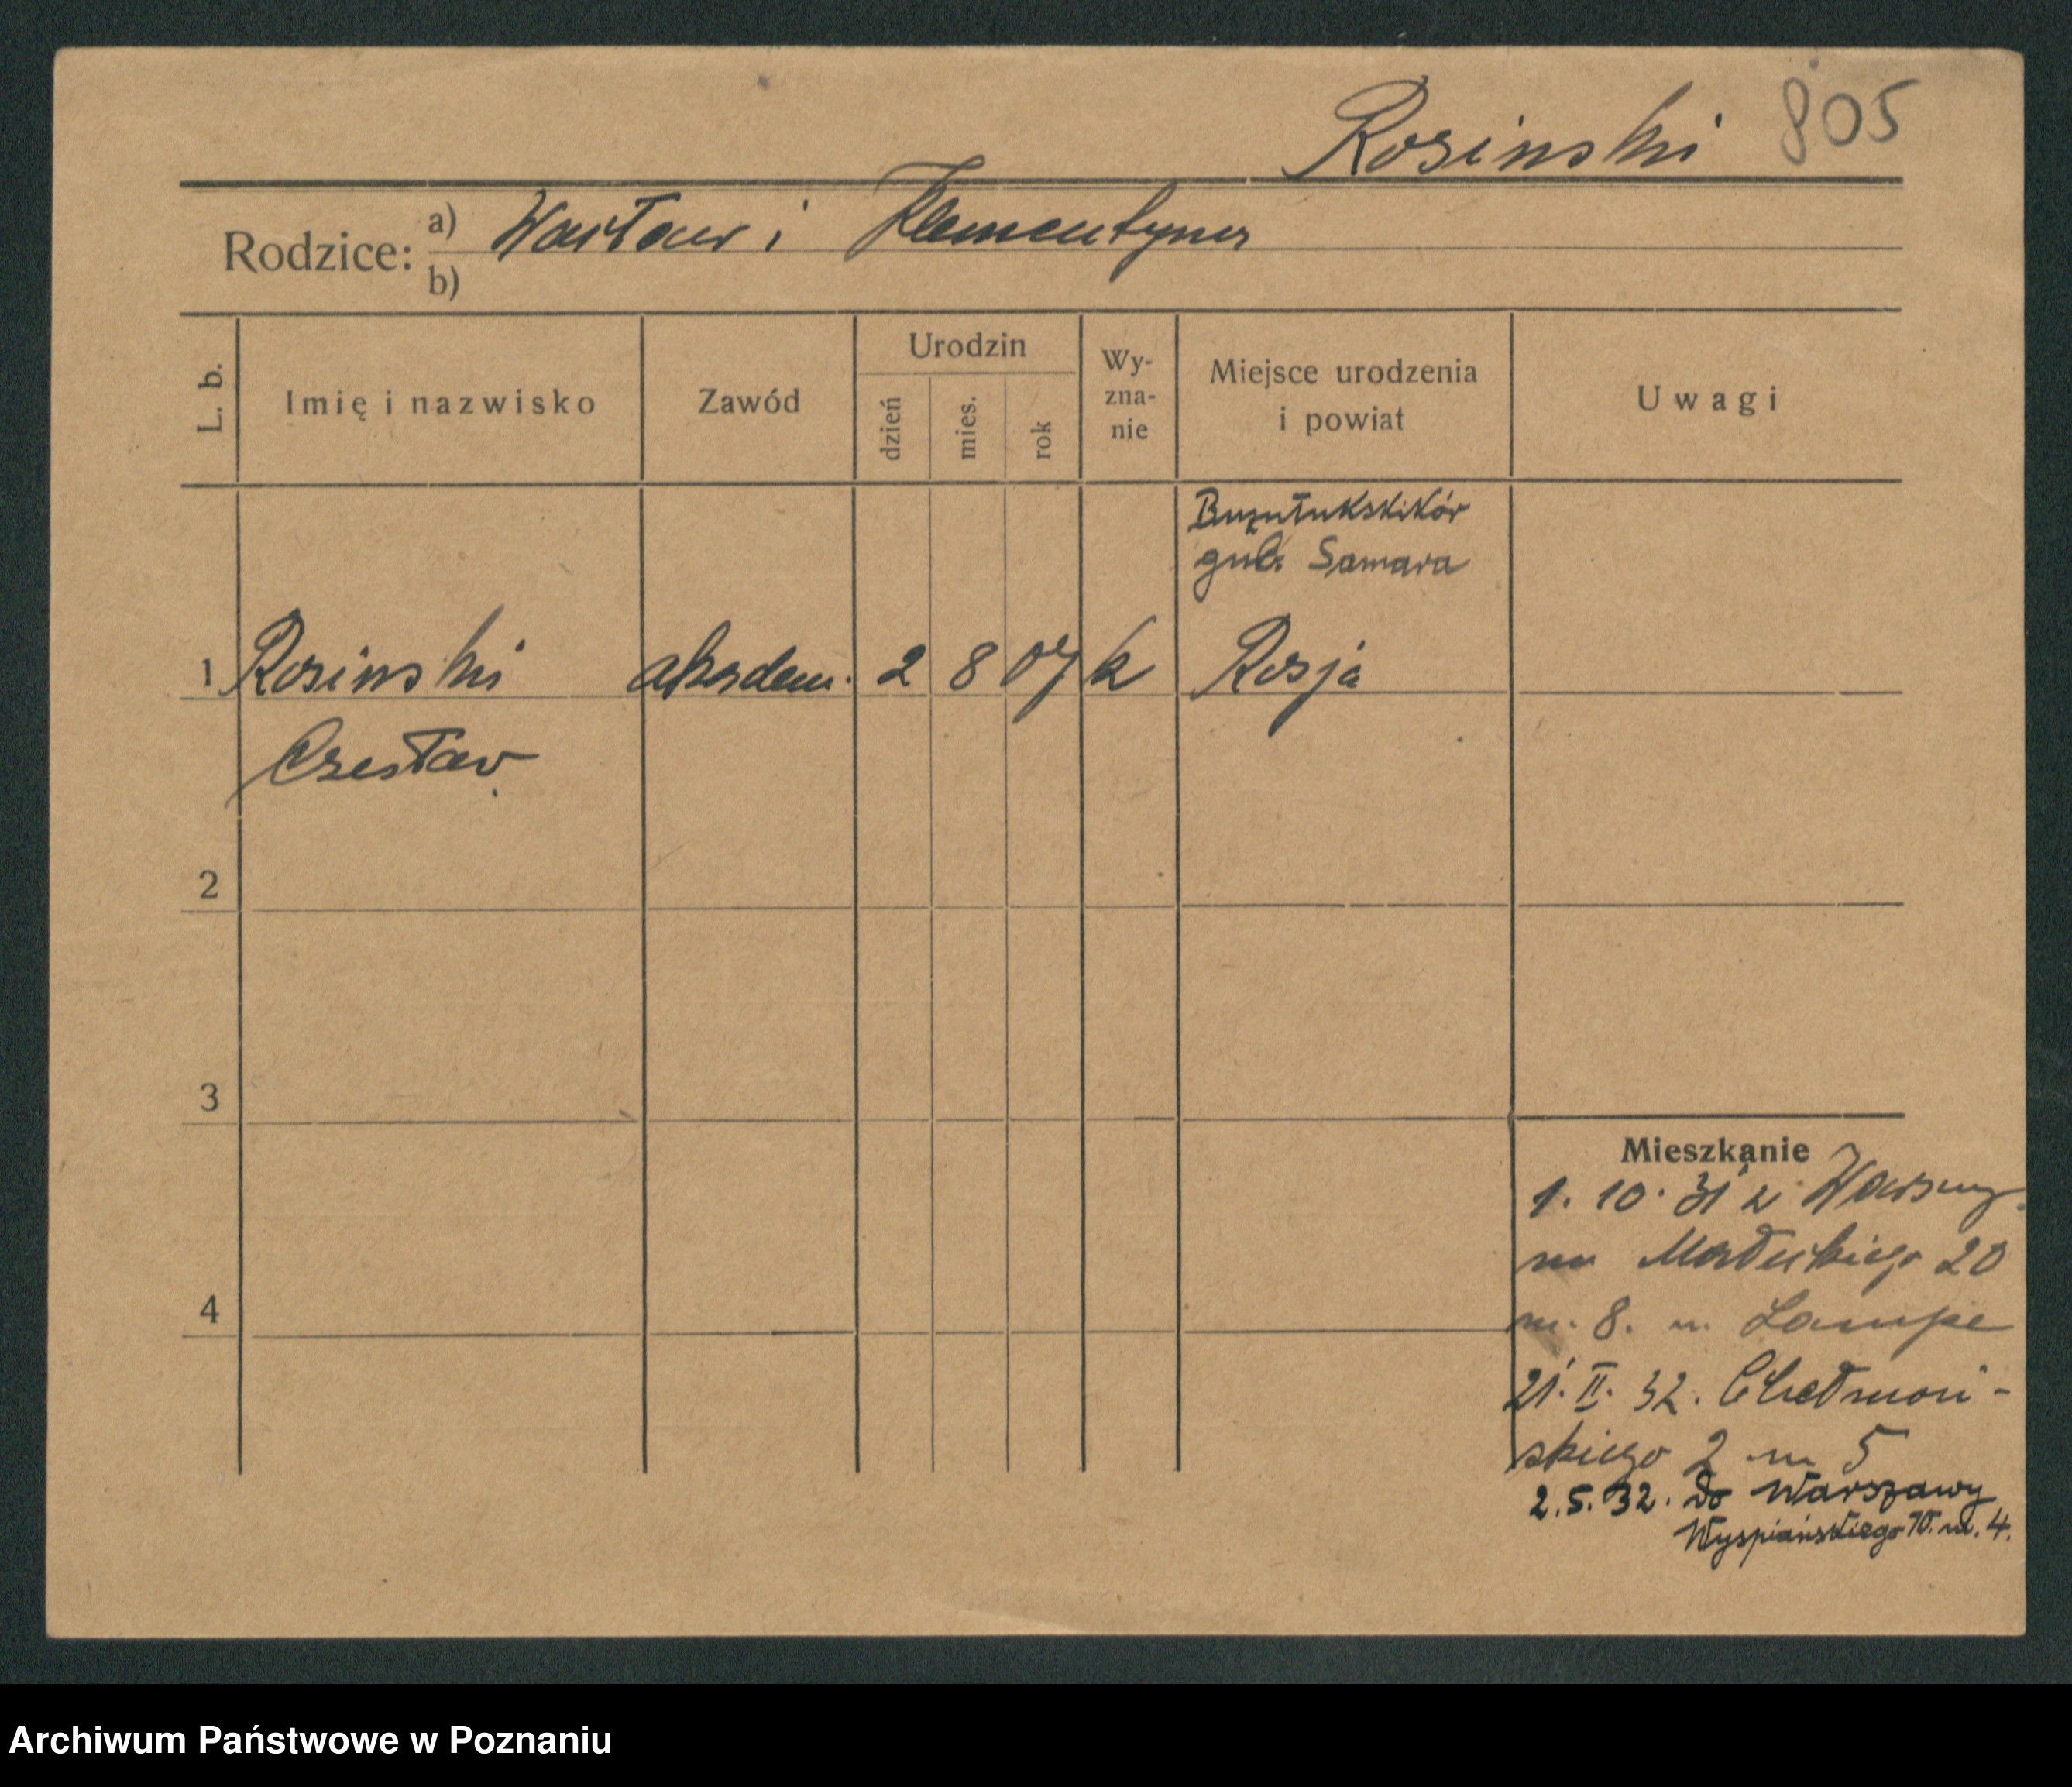 Rosinski 805
Rodzice: a) Wacław i Klementyna
b)
L. b.
Imię i nazwisko
Zawód
Urodzin
dzień
mies.
rok
Wy-
zna-
nie
Miejsce urodzenia
i powiat
Uwagi
Buzułukskikór
gub. Samara
1 Rosinski akadem. 2 8 07 k Rosja
Czesław
2
3
4
Mieszkanie
1. 10. 31 z Warszawy
na Małeckiego 20
m. 8. u. Lampe
21. II. 32. Chełmoń-
skiego 2 m 5
2.5.32. Do Warszawy
Wyspiańskiego 10. m. 4.
Archiwum Państwowe w Poznaniu